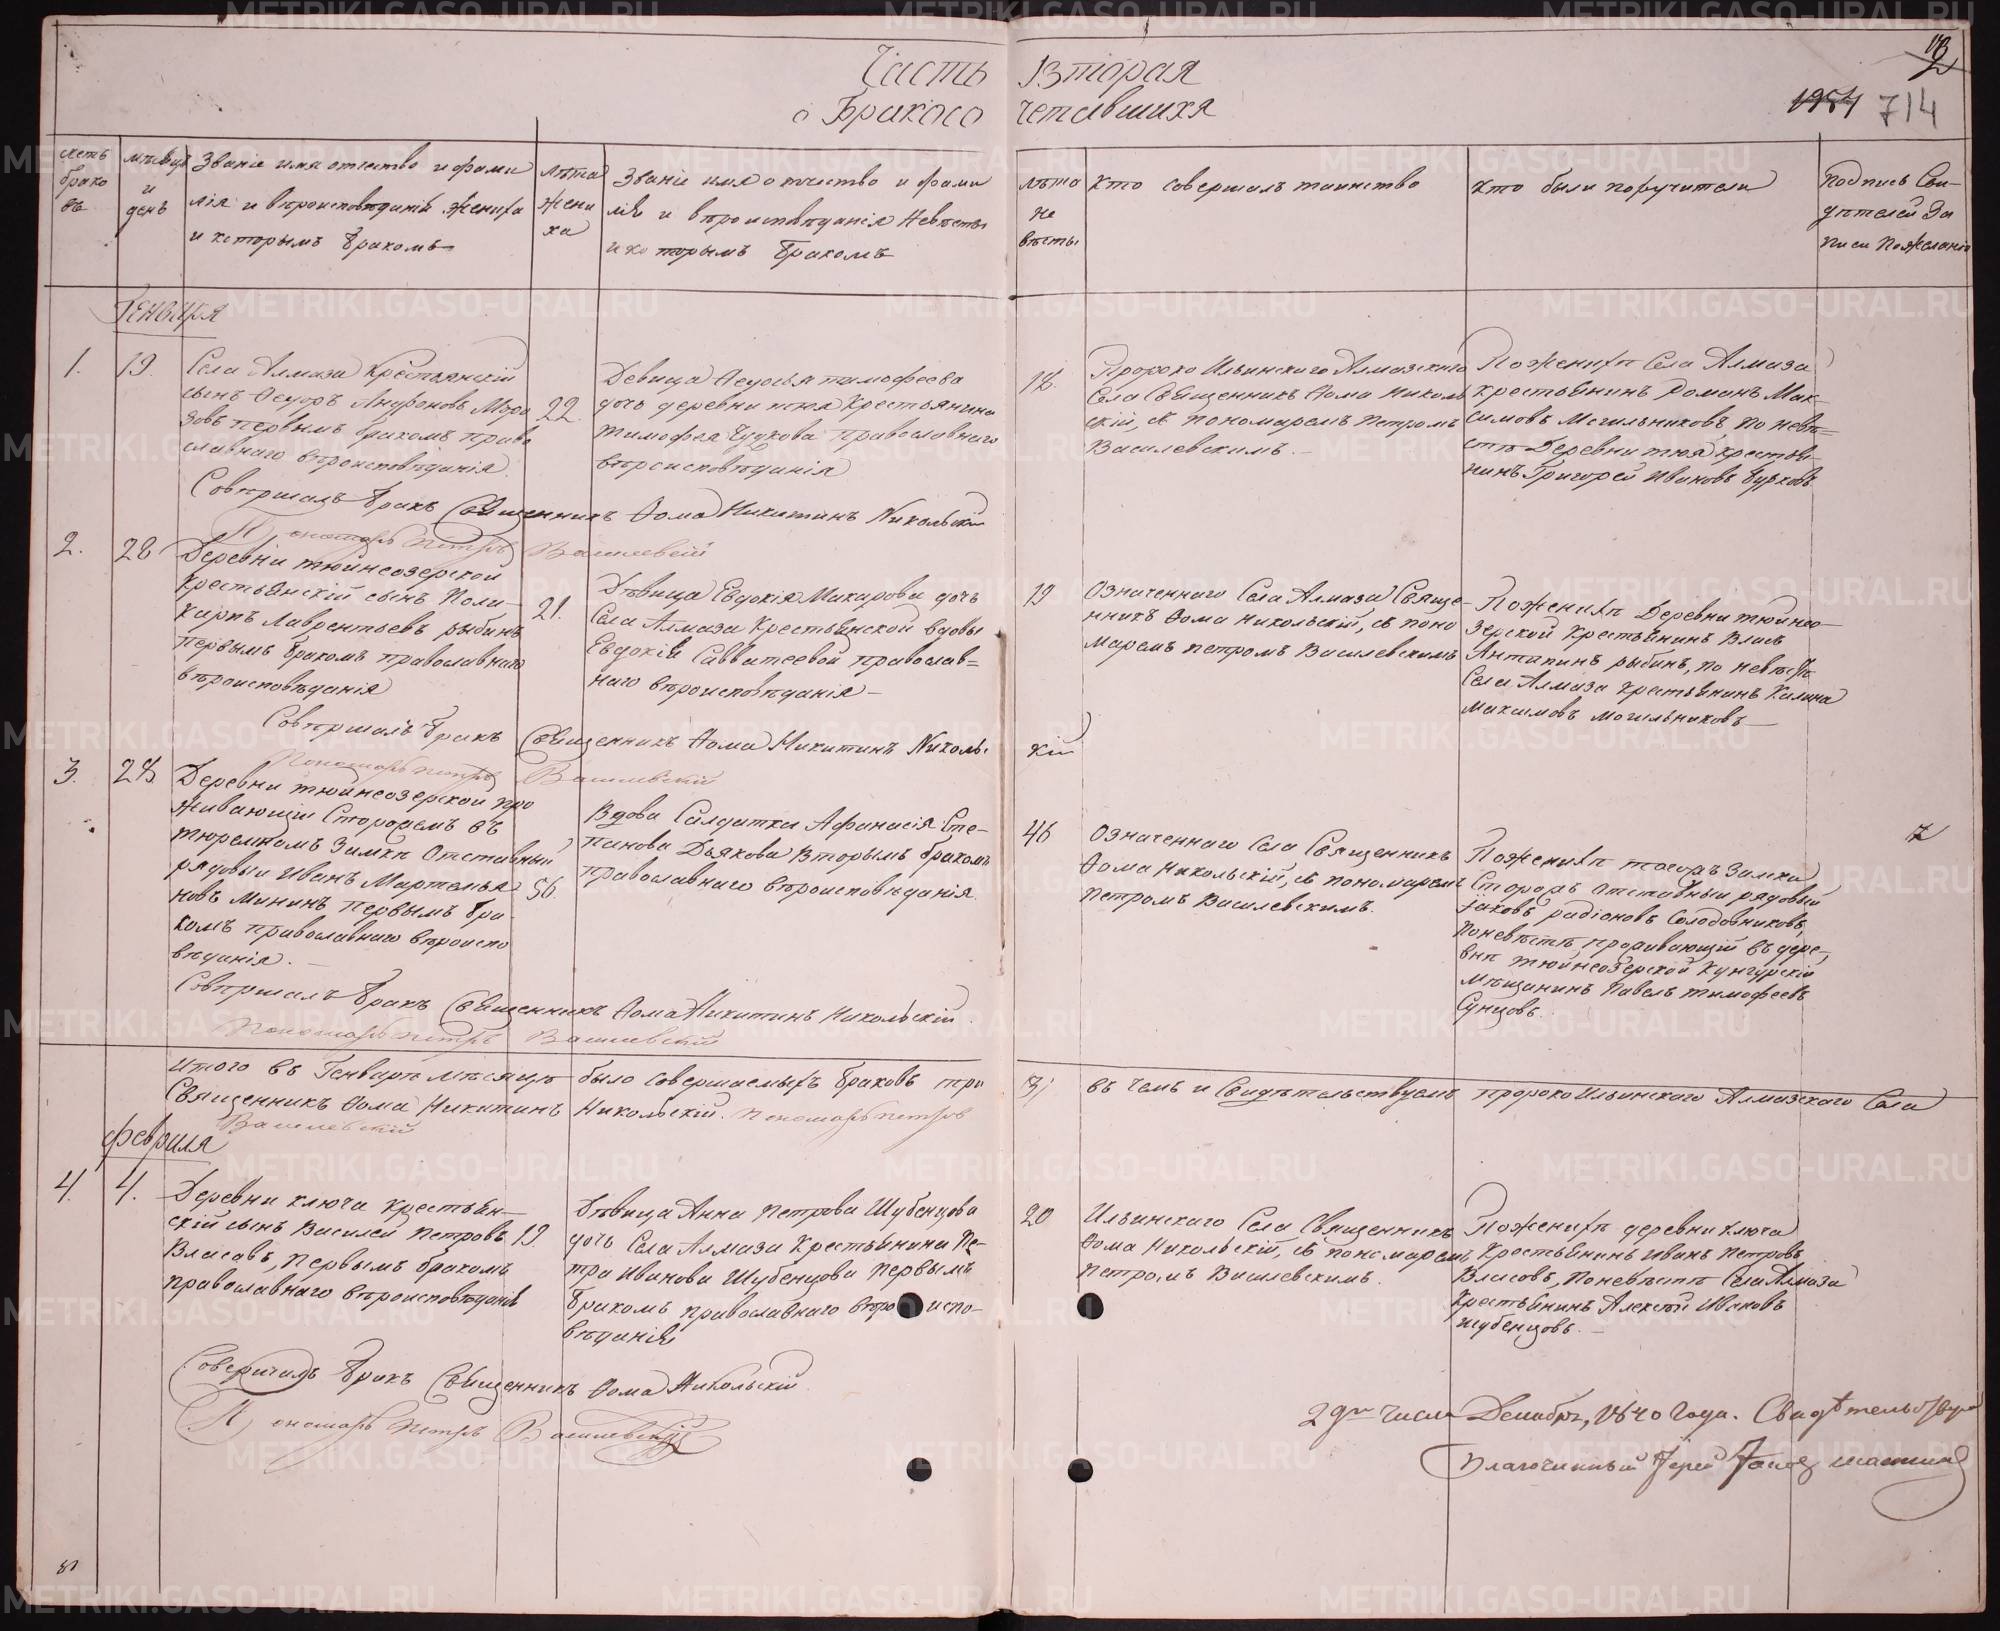 Часть Вторая
о Бракосочетавшихся
1954 714
Счетъ браковъ
мѣсяцъ и день
Званіе имя отчество и фами
лія и вѣроисповѣданій жениха
и которымъ бракомъ
лѣта жени ха
Званіе имя отчество и фами
лія и вѣроисповѣданія Невѣсты
и которымъ бракомъ
лѣта не вѣсты
Кто совершалъ таинство
Кто были поручители
Подпись Сви-
дѣтелей За
писи Пожеланію
Генваря
1. 19.
Села Алмаза Крестьянскій
сынъ Ѳедоръ Андроновъ Моро
зовъ первымъ бракомъ право
славнаго вѣроисповѣданія.
22
Девица Ѳедосья тимофеева
дочь деревни тюя Крестьянина
тимофея Чудкова православнаго
вѣроисповѣданія
18.
Пророко Ильинскаго Алмазскаго
Села Священникъ Ѳома Николь
скій, съ пономаремъ Петромъ
Василевскимъ.
Пожениху Села Алмаза
крестьянинъ Романъ Мак-
симовъ Могильниковъ, по невѣ-
стѣ Деревни тюя крестья-
нинъ Григорей Ивановъ
Совершалъ бракъ Священникъ Ѳома Никитинъ Никольскій
Пономарь Петръ Василевскій
2. 28
Деревни тюйнеозерской
крестьянскій сынъ Поли-
карпъ Лаврентьевъ рыбинъ
первымъ бракомъ православнаго
вѣроисповѣданія
21.
Дѣвица Евдокія Макарова дочь
Села Алмаза Крестьянской вдовы
Евдокіи Савватеевой православ=
наго вѣроисповѣданія
19
Означеннаго Села Алмаза Свяще-
нникъ Ѳома Никольскій, съ поно
маремъ петромъ Василевскимъ
Пожениху Деревни тюйнео-
зерской Крестьянинъ Власъ
Антипинъ рыбинъ, по невѣстѣ
Села Алмаза крестьянинъ Калина
Максимовъ могильниковъ
Совершалъ бракъ Священникъ Ѳома Никитинъ Никольскій
Пономарь петръ Василевскій
3. 28
Деревни тюйнеозерской про
живающій Сторожемъ въ
тюремномъ Замкѣ Отставный
рядовый Иванъ Мартемья
новъ Мининъ первымъ бра
комъ православнаго вѣроиспо
вѣданія.
56.
Вдова Салдатка Афанасія Сте-
панова Дьякова Вторымъ бракомъ
православнаго вѣроисповѣданія
46
Означеннаго Села Священникъ
Ѳома Никольскій, съ пономаремъ
Петромъ Василевскимъ.
Пожениху тогожъ Замка
Сторожъ отставный рядовый
Яковъ радіоновъ Солодовниковъ,
Поневѣстѣ проживающій въ дере-
внѣ тюйнеозерской Кунгурскій
мѣщанинъ Павелъ тимофеевъ
Сунцовъ.
Совершалъ бракъ Священникъ Ѳома Никитинъ Никольскій
Пономарь петръ Василевскій
Итого въ Генварѣ мѣсяцѣ было совершаемыхъ браковъ три 3) въ чемъ и Свидѣтельствуемъ пророкоИльинскаго Алмазскаго Села
Священникъ Ѳома Никитинъ Никольскій. Пономарь петръ
Василевскій
февраля
4. 4.
Деревни ключа крестьян-
скій сынъ Василей Петровъ
Власовъ, первымъ бракомъ
православнаго вѣроисповѣданія
19
Дѣвица Анна Петрова Шубенцова
дочь Села Алмаза Крестьянина Пе-
тра Иванова Шубенцова первымъ
бракомъ православнаго вѣроиспо-
вѣданія
20
Ильинскаго Села Священникъ
Ѳома Никольскій, съ пономаремъ
Петромъ Василевскимъ.
Пожениху деревни ключа
Крестьянинъ Иванъ Петровъ
Власовъ, Поневѣстѣ Села Алмаза
Крестьянинъ Алексѣй Ивановъ
шубенцовъ.
Совершалъ бракъ Священникъ Ѳома Никольскій
Пономарь Петръ Василевскій
2 дня числа Декабря, 1840 Года. Свидѣтельствую
Благочинный Іерей
METRIKI.GASO-URAL.RU